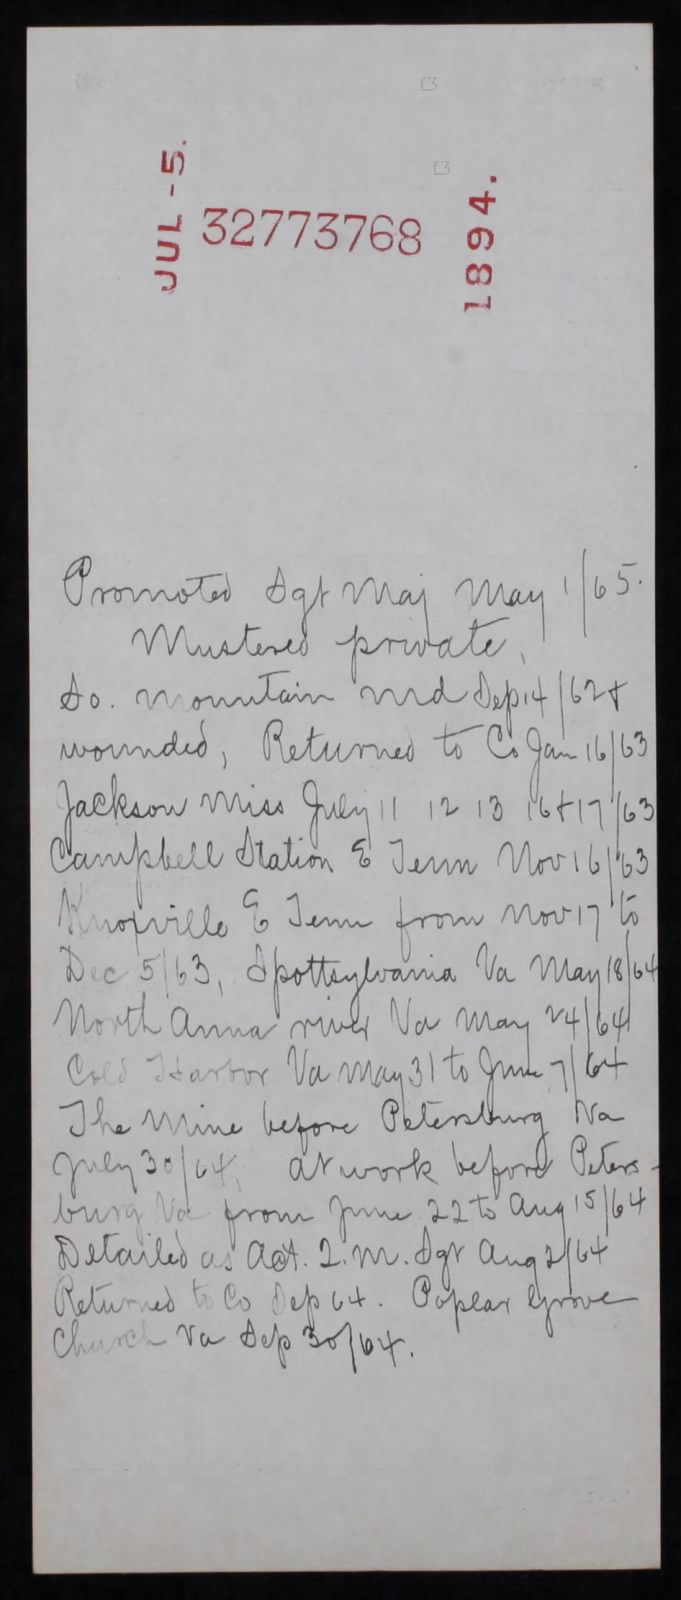 f3
f3
JUL -5.
32773768
1894.
Promoted Sgt Maj May 1/65.
Mustered private,
So. Mountain Md Sep 14/62 &
wounded, Returned to Co Jan 16/63
Jackson Miss July 11 12 13 16 & 17/63
Campbell Station E Tenn Nov 16/63
Knoxville E Tenn from Nov 17 to
Dec 5/63, Spottsylvania Va May 18/64
North Anna river Va May 24/64
Cold Harbor Va May 31 to June 7/64
The Mine before Petersburg Va
July 30/64, at work before Peters-
burg Va from June 22 to Aug 15/64
Detailed as Act. Q. M. Sgt Aug 2/64
Returned to Co Sep 64. Poplar Grove
Church Va Sep 30/64.